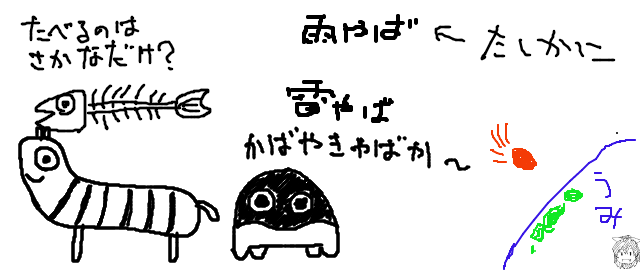 たべるのは
さかなだけ?
雨やば ← たしかに
雷やば
かばやきやばか〜
うみ